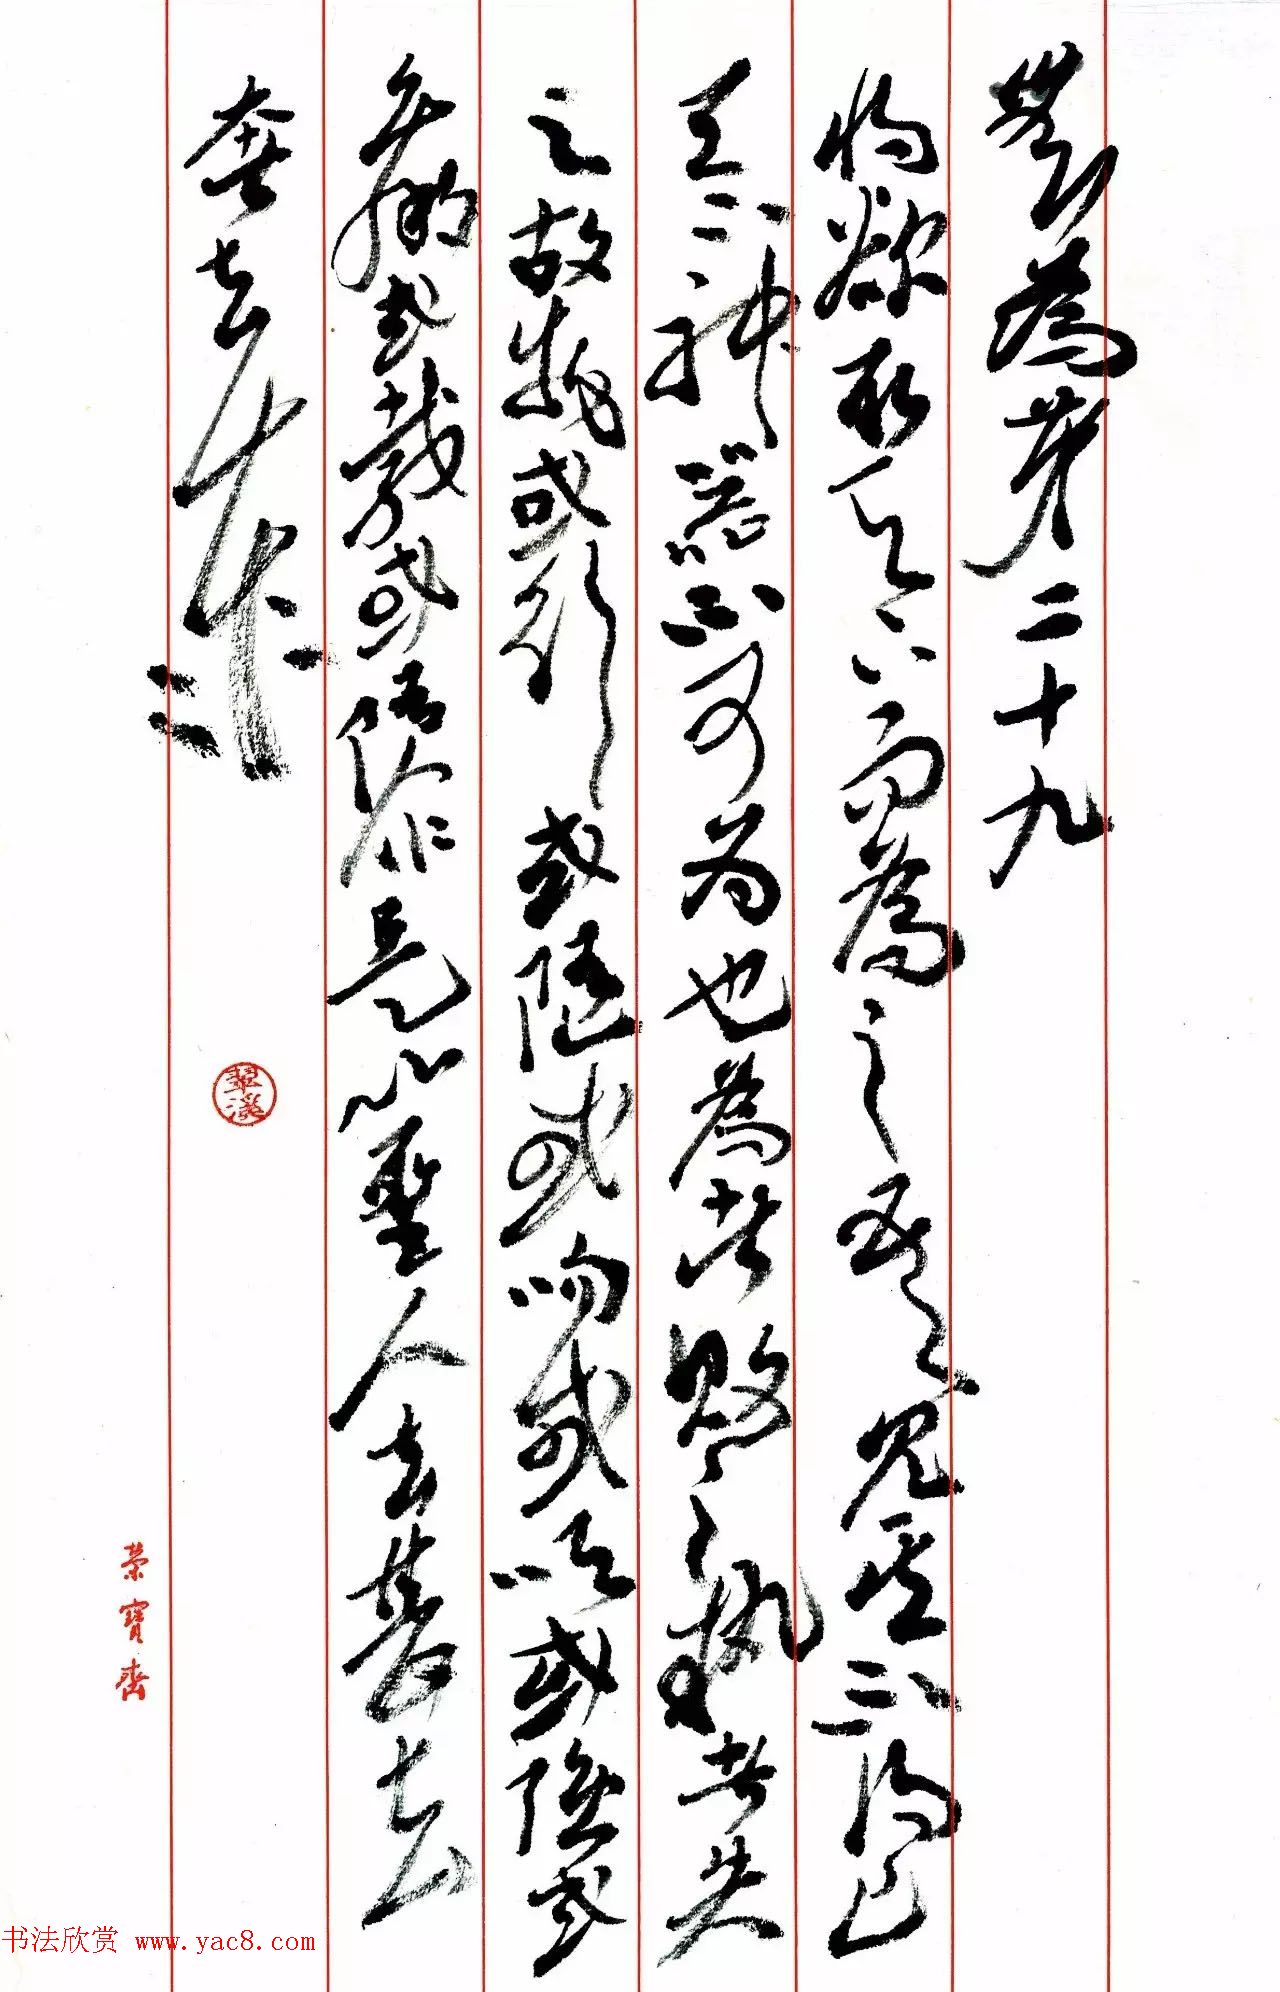 無為第二十九
將欲取天下而為之吾見其不得已
天下神器不可為也為者敗之執者失
之故物或行或隨或呴或吹或強或
羸或載或隳是以聖人去甚去
奢去泰
翠溪
榮寶齋
书法欣赏 www.yac8.com